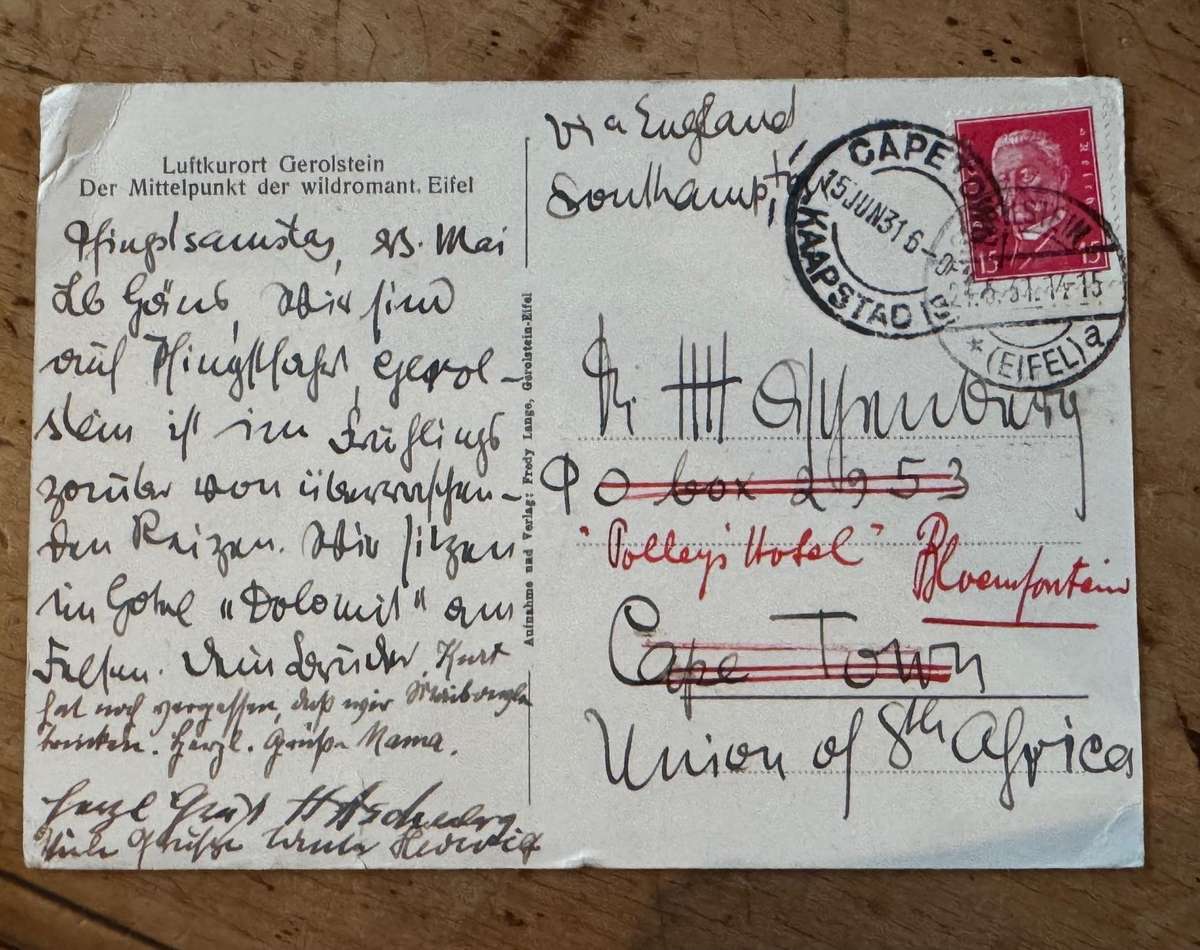 Luftkurort Gerolstein
Der Mittelpunkt der wildromant. Eifel
Pfingstsamstag, 23. Mai
Lb Häns, Wir sind
auf Pfingstfahrt, Gerol-
stein ist im Frühlings
zauber von überraschen-
den Reizen. Wir sitzen
im Hotel „Dolomit" am
Felsen. Dein Bruder Kurt
hat noch vergessen, daß wir Maibowle
trinken. Herzl. Grüße Mama.
Herzl Gruß
Viele Grüße Tante Hedwig
Aufnahme und Verlag: Fredy Lange, Gerolstein-Eifel
via England
Southampton
CAPE TOWN
15 JUN 31 6-
KAAPSTAD
GEROLSTEIN
24.5.31. 14-15
* (EIFEL) a
15 15
Mr HH
P O box 2953
"Polley's Hotel" Bloemfontein
Cape Town
Union of Sth Africa